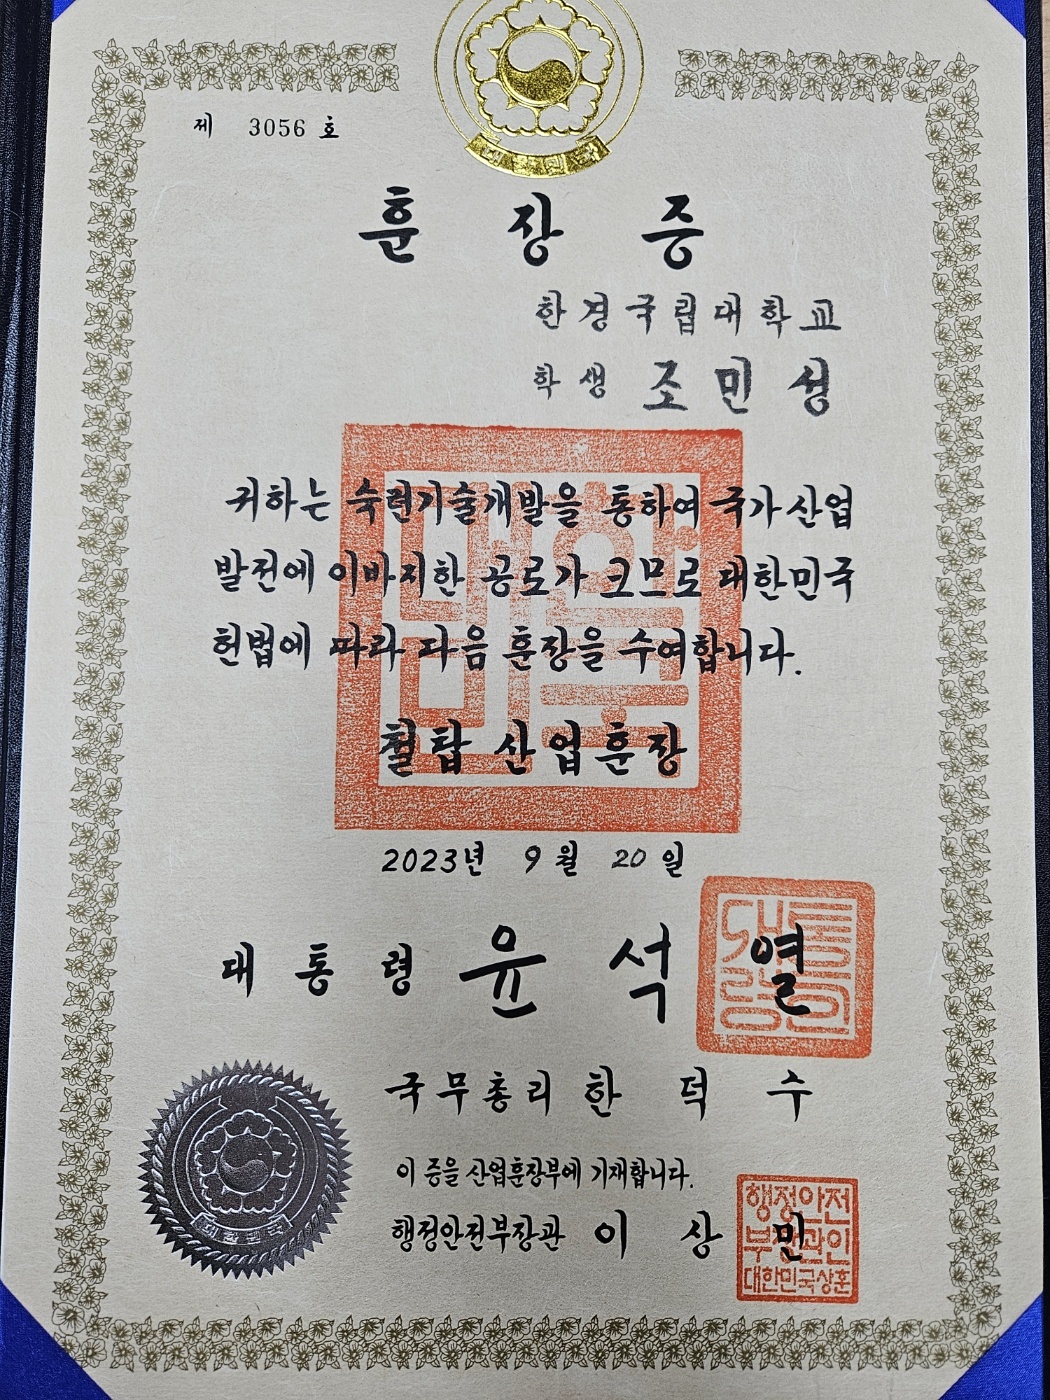 대한민국
제 3056 호
훈장증
한경국립대학교
학생 조민성
귀하는 숙련기술개발을 통하여 국가산업
발전에 이바지한 공로가 크므로 대한민국
헌법에 따라 다음 훈장을 수여합니다.
철탑산업훈장
2023년 9월 20일
대통령 윤석열
국무총리 한덕수
이 증을 산업훈장부에 기재합니다.
행정안전부장관 이상민
행정안전
부장관인
대한민국상훈
대한민국